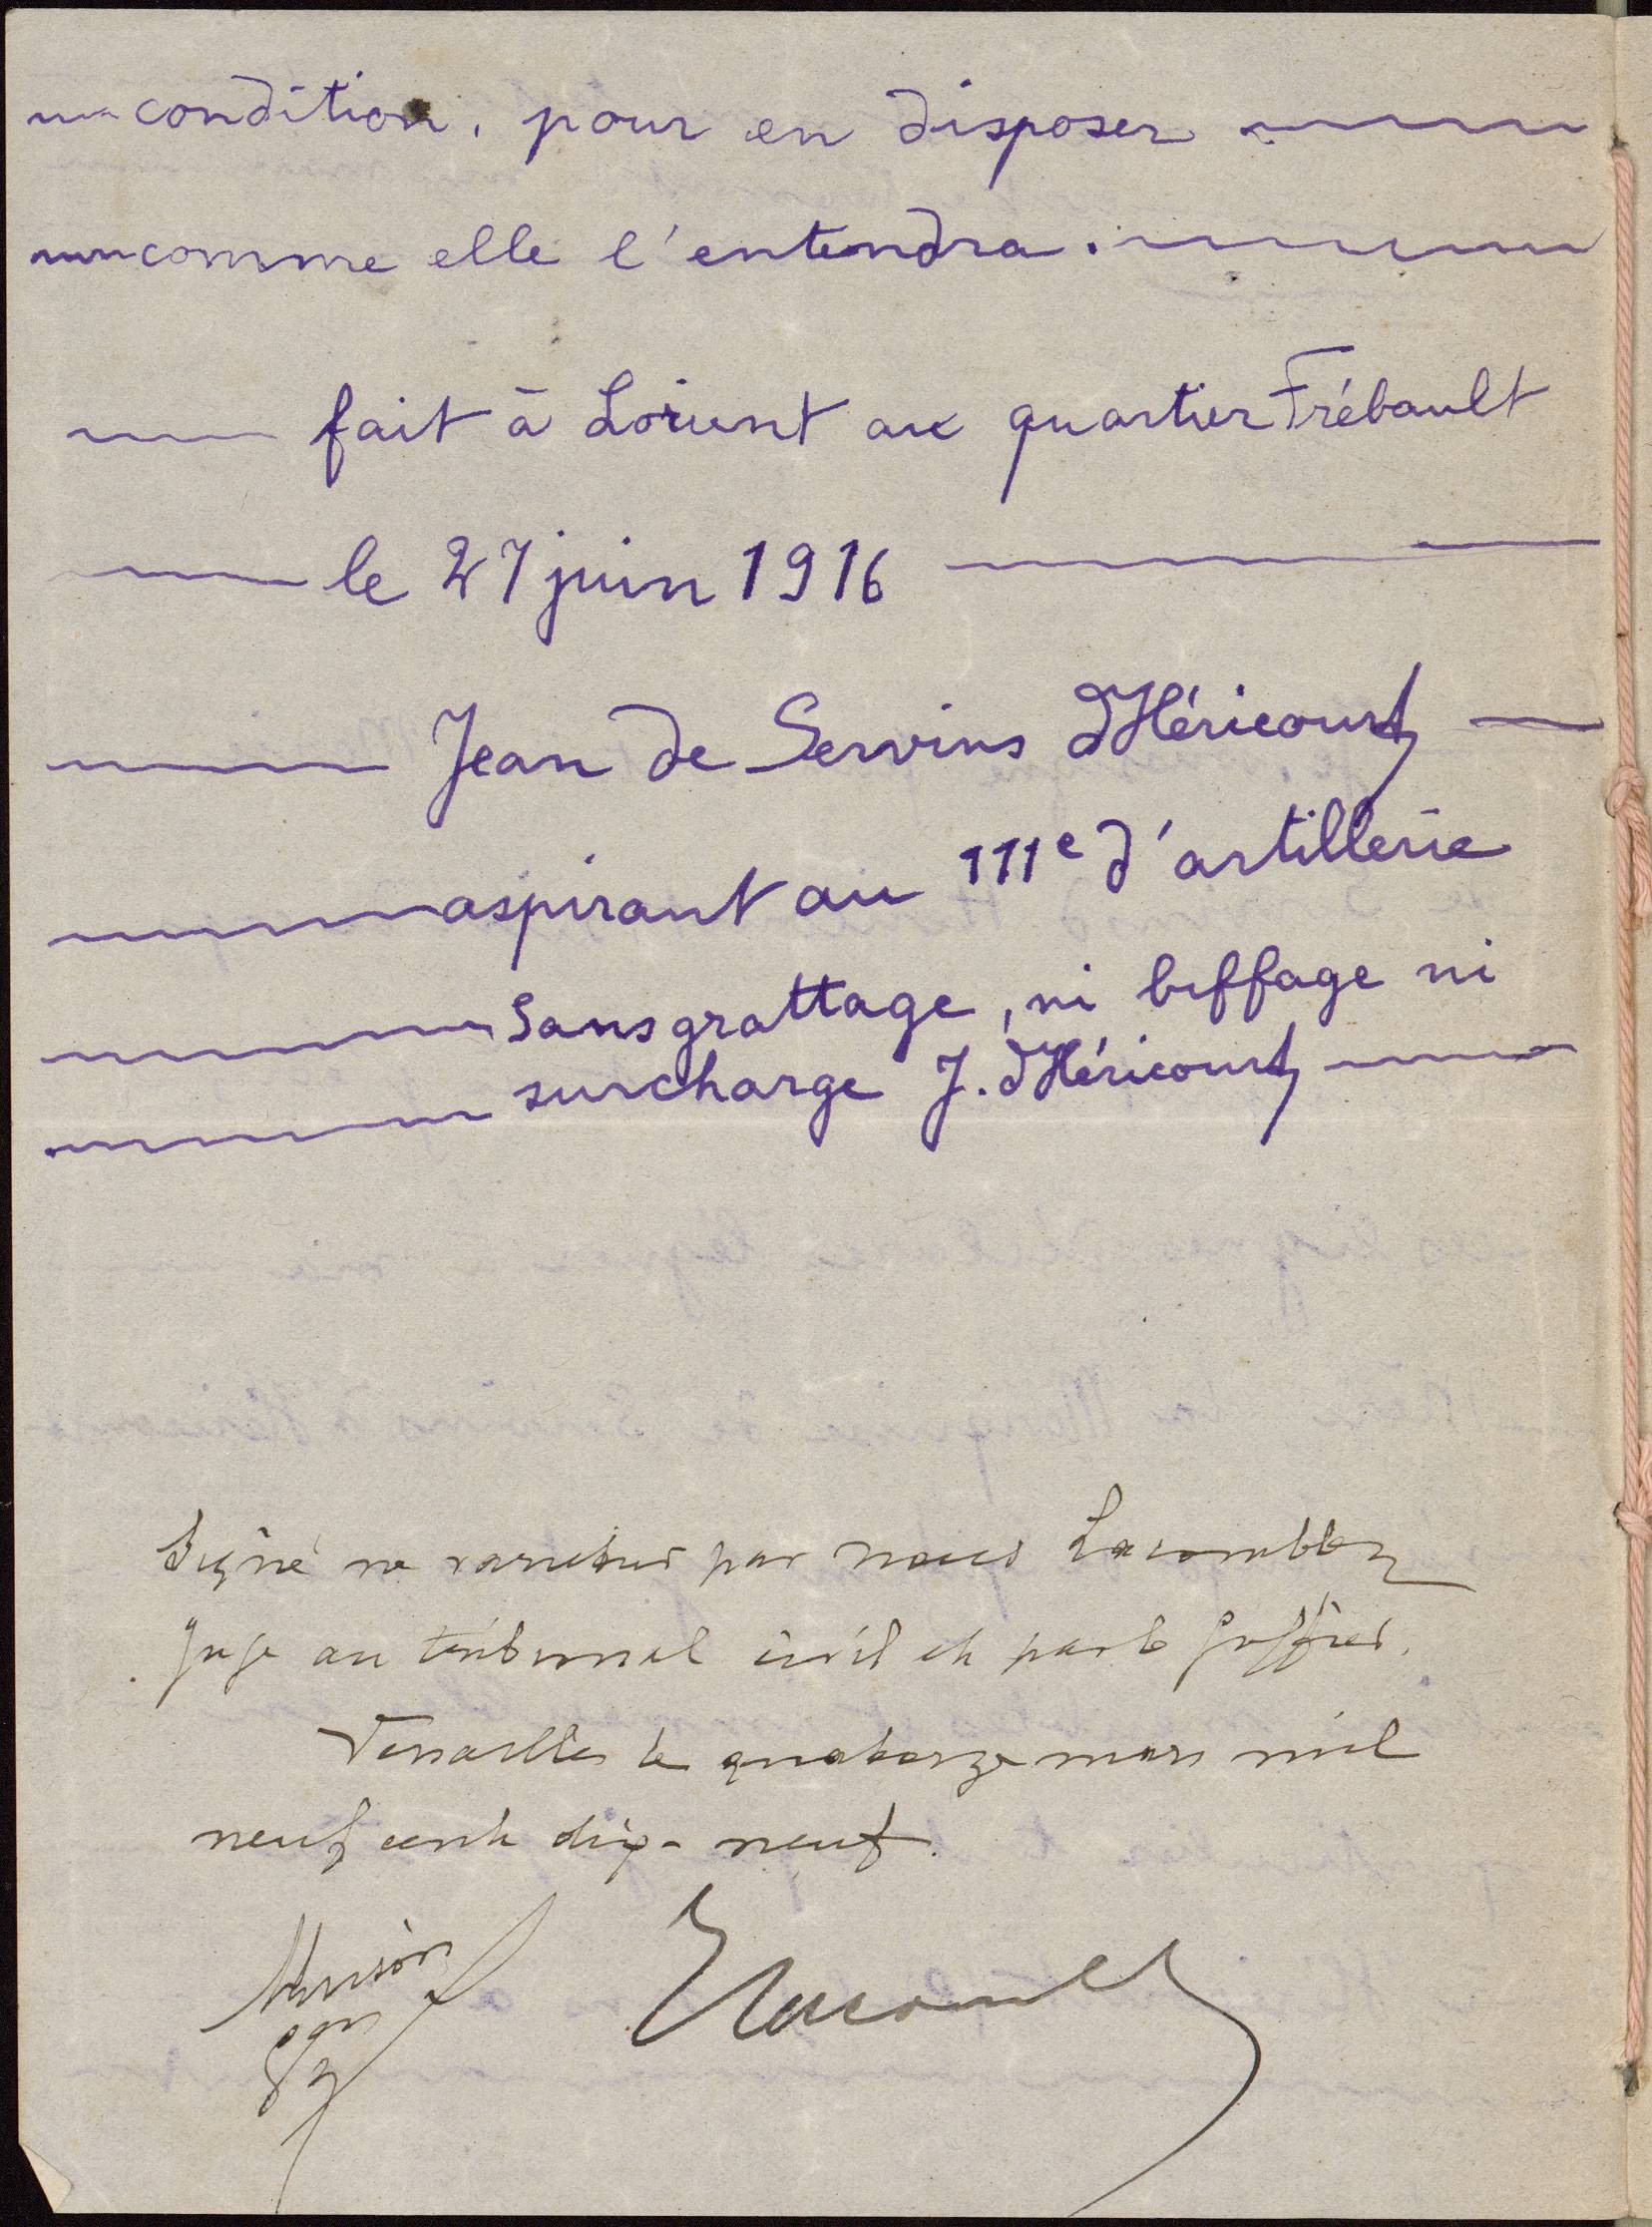 condition, pour en disposer
comme elle l'entendra.
fait à Lorient au quartier Frébault
le 27 juin 1916
Jean de Servins d'Héricourt
aspirant au 111e d'artillerie
Sans grattage, ni biffage ni
surcharge J. d'Héricourt
Signé ne varietur par nous Lacomblez
juge au tribunal civil et par le greffier.
Versailles le quatorze mars mil
neuf cent dix-neuf.